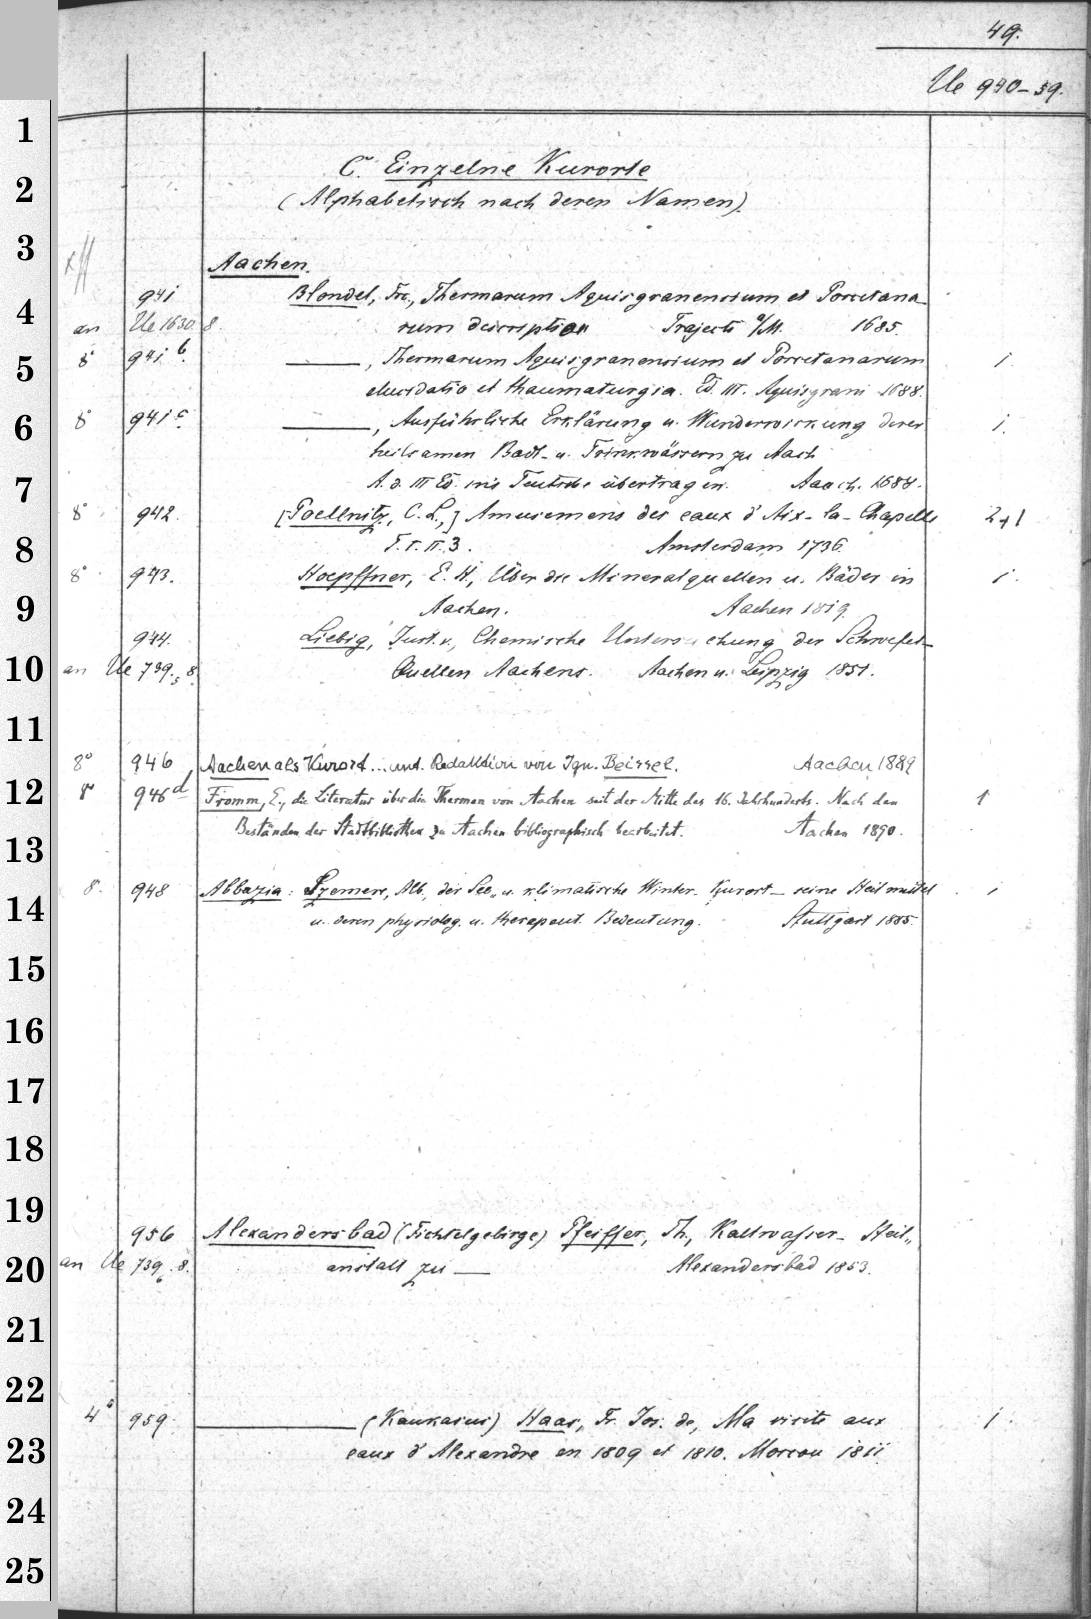 49.
Ue 990-59.
C. Einzelne Kurorte
(Alphabetisch nach deren Namen)
Aachen.
941 Blondel, Frc., Thermarum Aquisgranensium et Porcetana-
an Ue 1630. 8. rum descriptio Trajecti a/M. 1685.
8° 941 b. ——, Thermarum Aquisgranensium et Porcetanarum 1.
elucidatio et thaumaturgia. Ed. III. Aquisgrani 1688.
8° 941 c. ——, Ausführliche Erklärung u. Wunderwirkung derer 1.
heilsamen Badt- u. Trinkwässern zu Aach
A. d. III Ed. ins Teutsche übertragen. Aach. 1688.
8° 942. [Poellnitz, C. L.,] Amusemens des eaux d'Aix-la-Chapelle 2+1
Amsterdam 1736.
8° 943. Hoepffner, E. H., Über die Mineralquellen u. Bäder in 1.
Aachen. Aachen 1819.
944. Liebig, Just. v., Chemische Untersuchung der Schwefel-
an Ue 739,5 8. Quellen Aachens. Aachen u. Leipzig 1851.
8° 946 Aachen als Kurort... unt. Redaktion von Ign. Beissel. Aachen 1889
8° 946 d Fromm, E., die Literatur über die Thermen von Aachen seit der Mitte des 16. Jahrhunderts. Nach den 1
Beständen der Stadtbibliothek zu Aachen bibliographisch bearbeitet. Aachen 1890.
8. 948 Abbazia: Szemere, Alb., der See- u. klimatische Winter-Kurort – seine Heilmittel 1
u. deren physiolog. u. therapeut. Bedeutung. Stuttgart 1885.
956 Alexandersbad (Fichtelgebirge) Pfeiffer, Th., Kaltwasser-Heil-
an Ue 739,6 8. anstalt zu — Alexandersbad 1853.
4° 959. —— (Kaukasus) Haas, Fr. Jos. de, Ma visite aux 1.
eaux d'Alexandre en 1809 et 1810. Moscou 1811